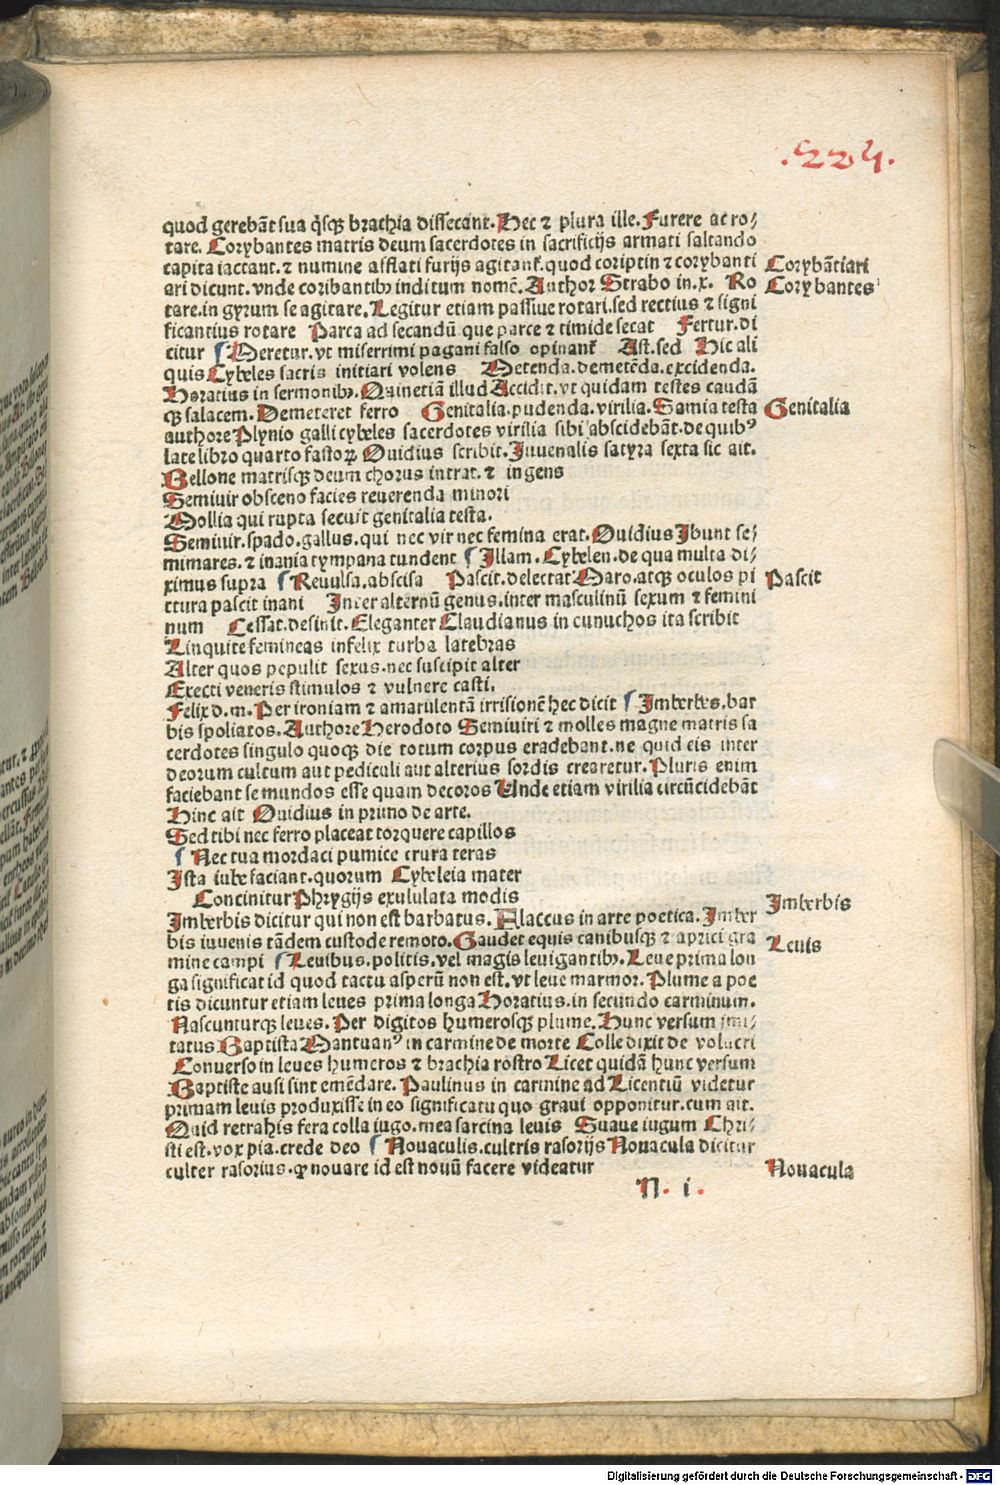 .224.
quod gerebāt sua q̇sqꝫ brachia dissecant. Hec ⁊ plura ille. Furere ac ro⸗
tare. Corybantes matris deum sacerdotes in sacrificijs armati saltando
capita iactant. ⁊ numine afflati furijs agitant᷑. quod coriptin ⁊ corybanti
Corybātiari
ari dicunt. vnde coribantibꝫ inditum nomē. Author Strabo in .x. Ro
Corybantes
tare. in gyrum se agitare. Legitur etiam passiue rotari. sed rectius ⁊ signi
ficantius rotare Parca ad secandū que parce ⁊ timide secat Fertur. di
citur ¶ Meretur. vt miserrimi pagani falso opinant᷑ Ast. sed Hic ali
quis Cybeles sacris initiari volens Metenda. demetēda. excidenda.
Horatius in sermonibꝫ. Quinetiā illud Accidit. vt quidam testes caudā
qꝫ salacem. Demeteret ferro Genitalia. pudenda. virilia. Samia testa
Genitalia
authore Plynio galli cybeles sacerdotes virilia sibi abscidebāt. de quibꝰ
late libro quarto fastoꝝ Ouidius scribit. Juuenalis satyra sexta sic ait.
Bellone matrisqꝫ deum chorus intrat. ⁊ ingens
Semiuir obsceno facies reuerenda minori
Mollia qui rupta secuit genitalia testa.
Semiuir. spado. gallus. qui nec vir nec femina erat. Ouidius Ibunt se⸗
mimares. ⁊ inania tympana tundent ¶ Illam. Cybelen. de qua multa di⸗
ximus supra ¶ Reuulsa. abscisa Pascit. delectat Maro. atqꝫ oculos pi
Pascit
ctura pascit inani Inter alternū genus. inter masculinū sexum ⁊ femini
num Cessat. desinit. Eleganter Claudianus in eunuchos ita scribit
Linquite femineas infelix turba latebras
Alter quos pepulit sexus. nec suscipit alter
Execti veneris stimulos ⁊ vulnere casti.
Felix d. m. Per ironiam ⁊ amarulentā irrisionē hec dicit ¶ Imberbes. bar
bis spoliatos. Authore Herodoto Semiuiri ⁊ molles magne matris sa
cerdotes singulo quoqꝫ die totum corpus eradebant. ne quid eis inter
deorum cultum aut pediculi aut alterius sordis crearetur. Pluris enim
faciebant se mundos esse quam decoros Unde etiam virilia circūcidebāt
Hinc ait Ouidius in primo de arte.
Sed tibi nec ferro placeat torquere capillos
¶ Nec tua mordaci pumice crura teras
Ista iube faciant. quorum Cybeleia mater
Concinitur Phrygijs exululata modis
Imberbis
Imberbis dicitur qui non est barbatus. Flaccus in arte poetica. Imber
bis iuuenis tādem custode remoto. Gaudet equis canibusqꝫ ⁊ aprici gra
Leuis
mine campi ¶ Leuibus. politis. vel magis leuigantibꝫ. Leue prima lon
ga significat id quod tactu asperū non est. vt leue marmor. Plume a poe
tis dicuntur etiam leues prima longa Horatius. in secundo carminum.
Nascunturqꝫ leues. Per digitos humerosqꝫ plume. Hunc versum imi⸗
tatus Baptista Mantuanꝰ in carmine de morte Colle dixit de volucri
Conuerso in leues humeros ⁊ brachia rostro Licet quidā hunc versum
Baptiste ausi sint emēdare. Paulinus in carmine ad Licentiū videtur
primam leuis produxisse in eo significatu quo graui opponitur. cum ait.
Quid retrahis fera colla iugo. mea sarcina leuis Suaue iugum Chri⸗
sti est. vox pia. crede deo ¶ Nouaculis. cultris rasorijs Nouacula dicitur
culter rasorius. ꝙ nouare id est nouū facere videatur
Nouacula
N. i.
Digitalisierung gefördert durch die Deutsche Forschungsgemeinschaft - DFG